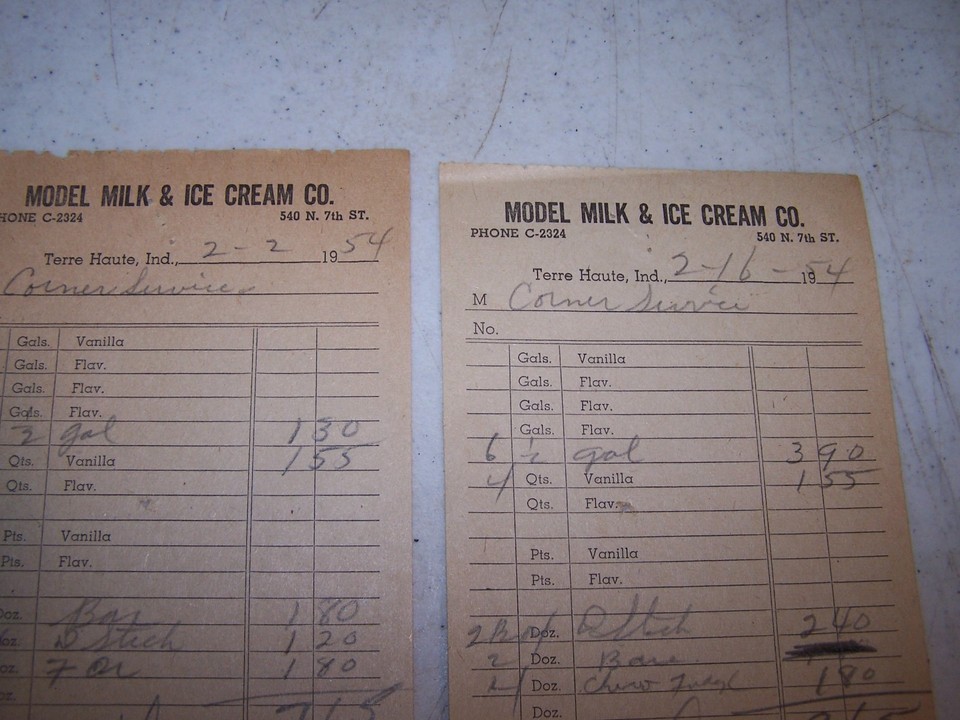 MODEL MILK & ICE CREAM CO.
HONE C-2324 540 N. 7th ST.
Terre Haute, Ind., 2-2 1954
Corner Service
Gals. Vanilla
Gals. Flav.
Gals. Flav.
Gals. Flav.
gal 130
Qts. Vanilla 155
Qts. Flav.
Pts. Vanilla
Pts. Flav.
Doz. Bar 180
oz. D Stick 120
oz. 7 Oz 180
oz.
715
MODEL MILK & ICE CREAM CO.
PHONE C-2324 540 N. 7th ST.
Terre Haute, Ind., 2-16-1954
M Corner Service
No.
Gals. Vanilla
Gals. Flav.
Gals. Flav.
Gals. Flav.
6 ½ gal 390
4 Qts. Vanilla 155
Qts. Flav.
Pts. Vanilla
Pts. Flav.
2 Doz. D Stick 240
2 Doz. Bars
Doz. Choc Fudge 180
Doz.